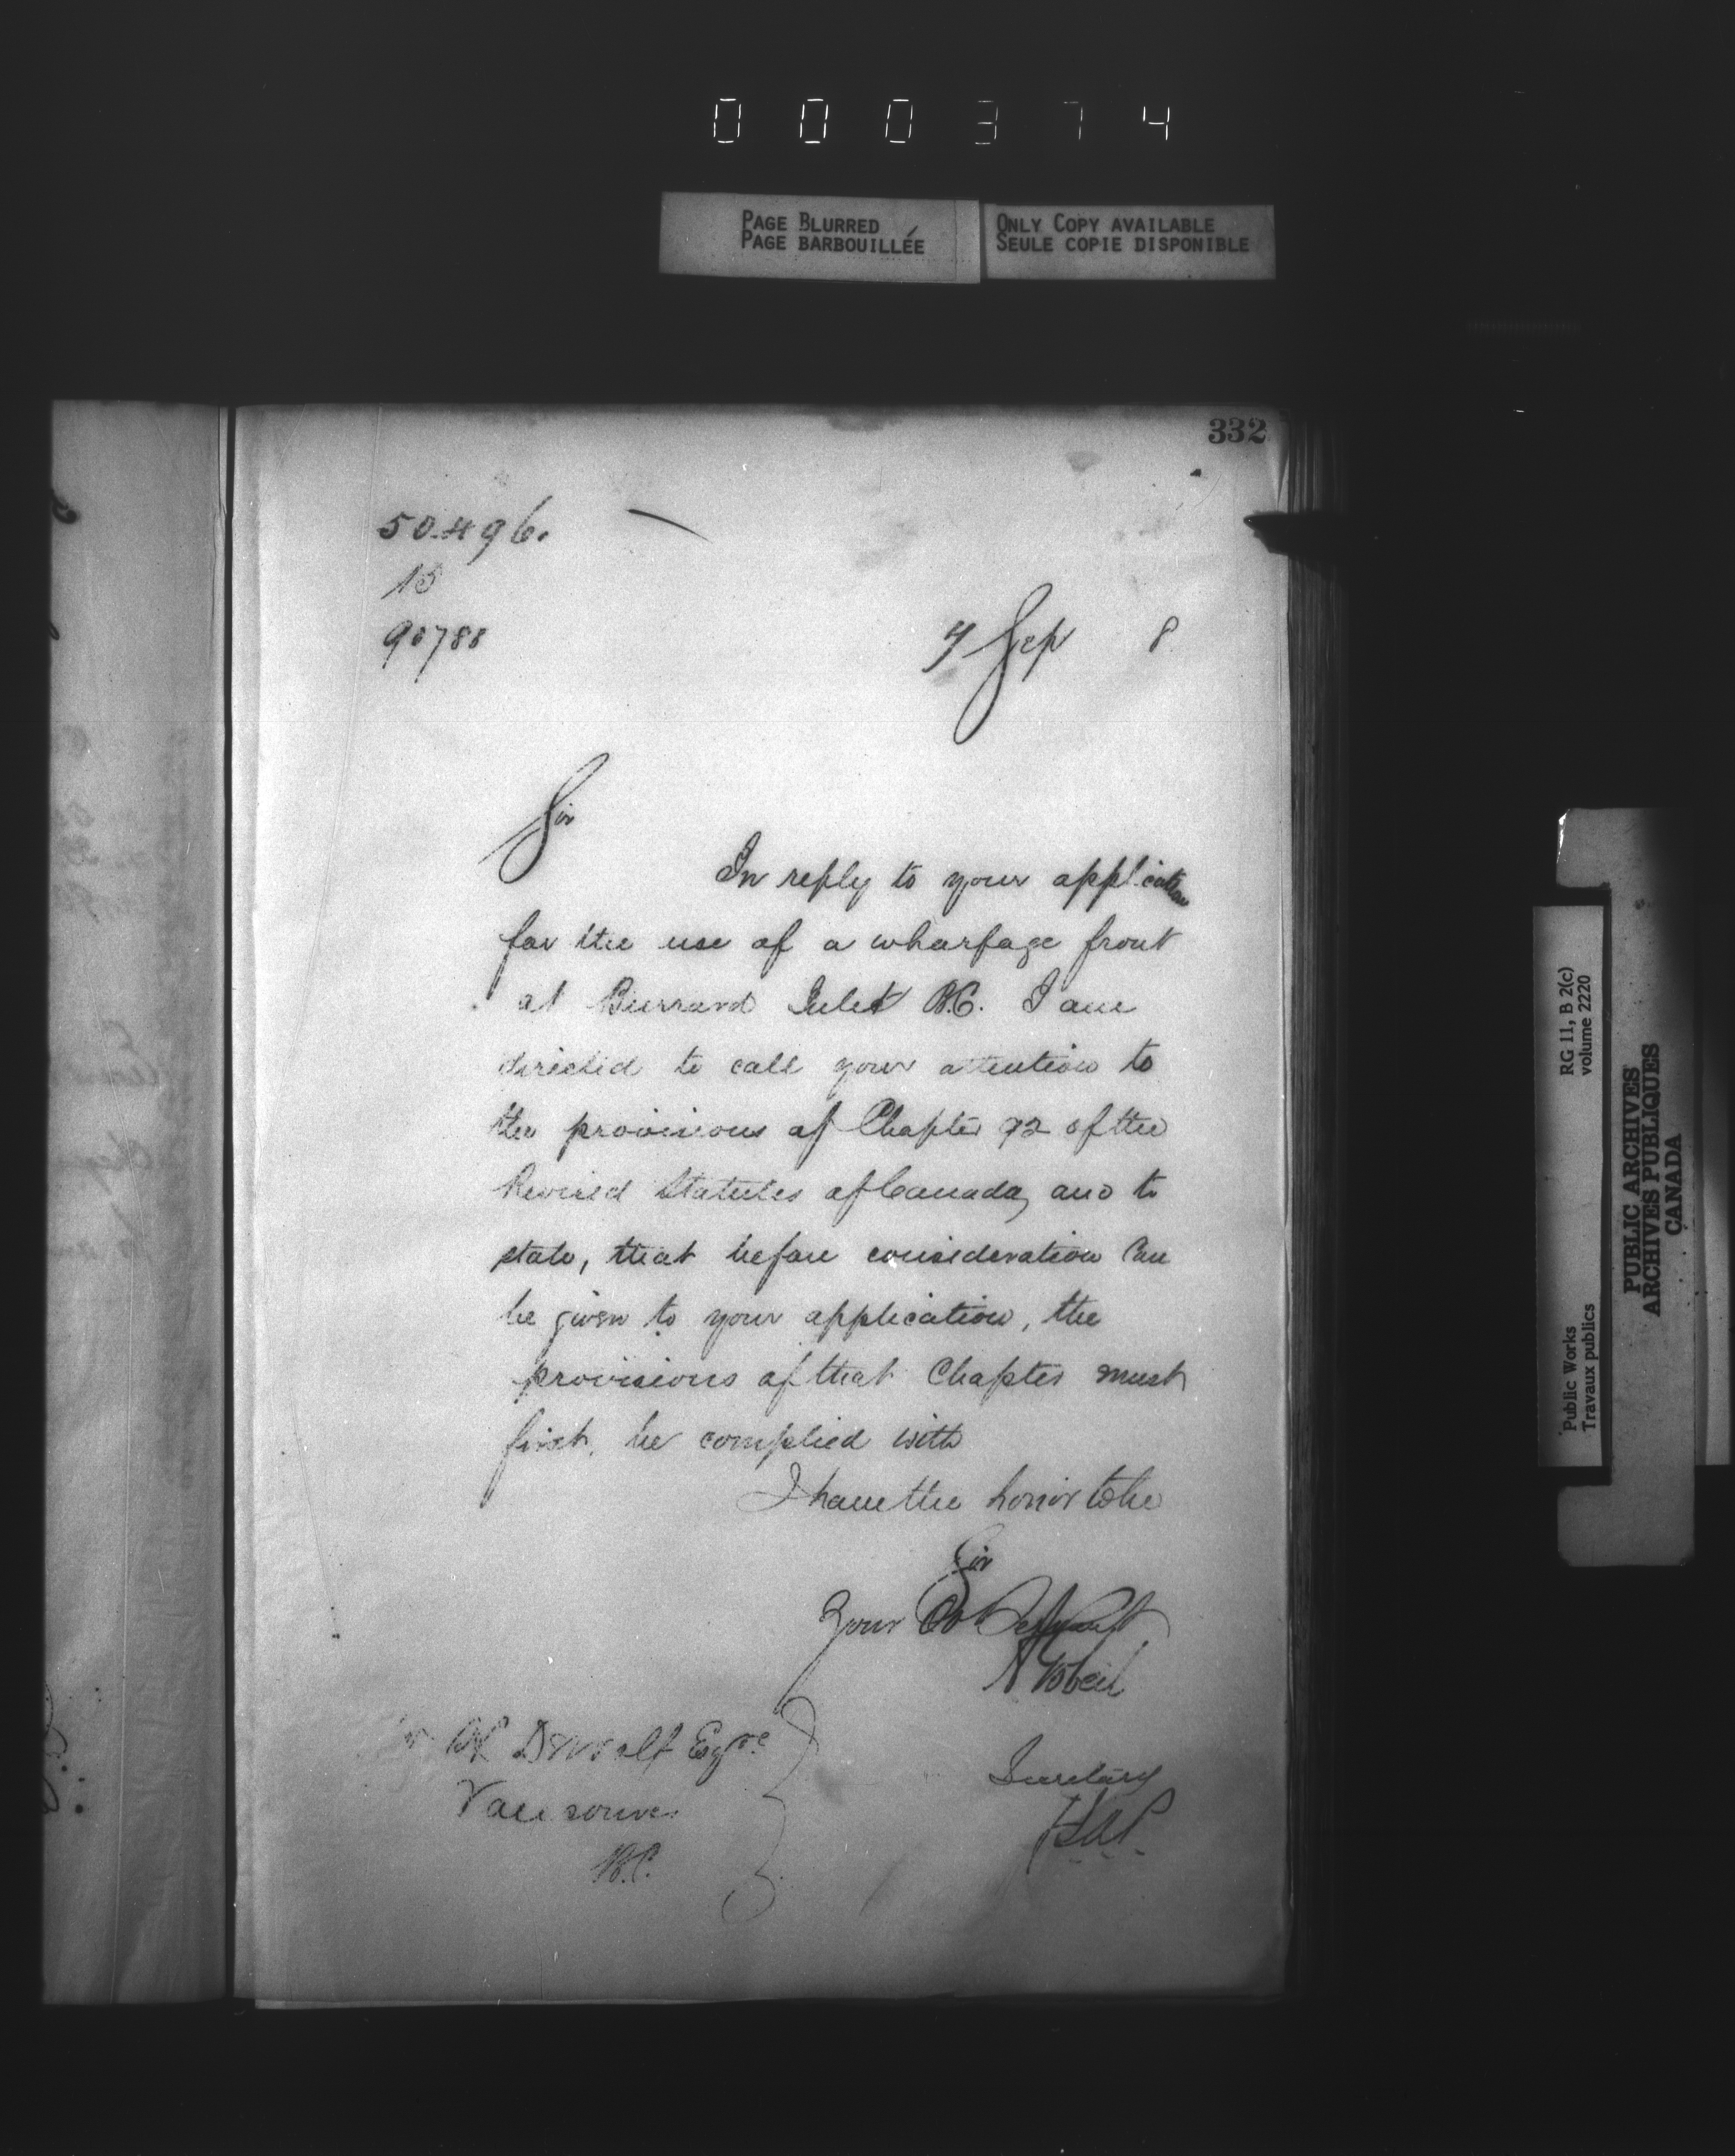 000374
PAGE BLURRED
PAGE BARBOUILLÉE
ONLY COPY AVAILABLE
SEULE COPIE DISPONIBLE
332
50496.
15
90788
7 Sep 8
Sir
In reply to your application
for the use of a wharfage front
at Burrard Inlet B.C. I am
directed to call your attention to
the provisions of Chapter 92 of the
Revised Statutes of Canada, and to
state, that before consideration can
be given to your application, the
provisions of that Chapter must
first, be complied with
I have the honor to be
Sir
Your Ob
A Gobeil
Secretary
Esqre
Vancouver
B.C.
RG 11, B 2(c)
volume 2220
Public Works
Travaux publics
PUBLIC ARCHIVES
ARCHIVES PUBLIQUES
CANADA